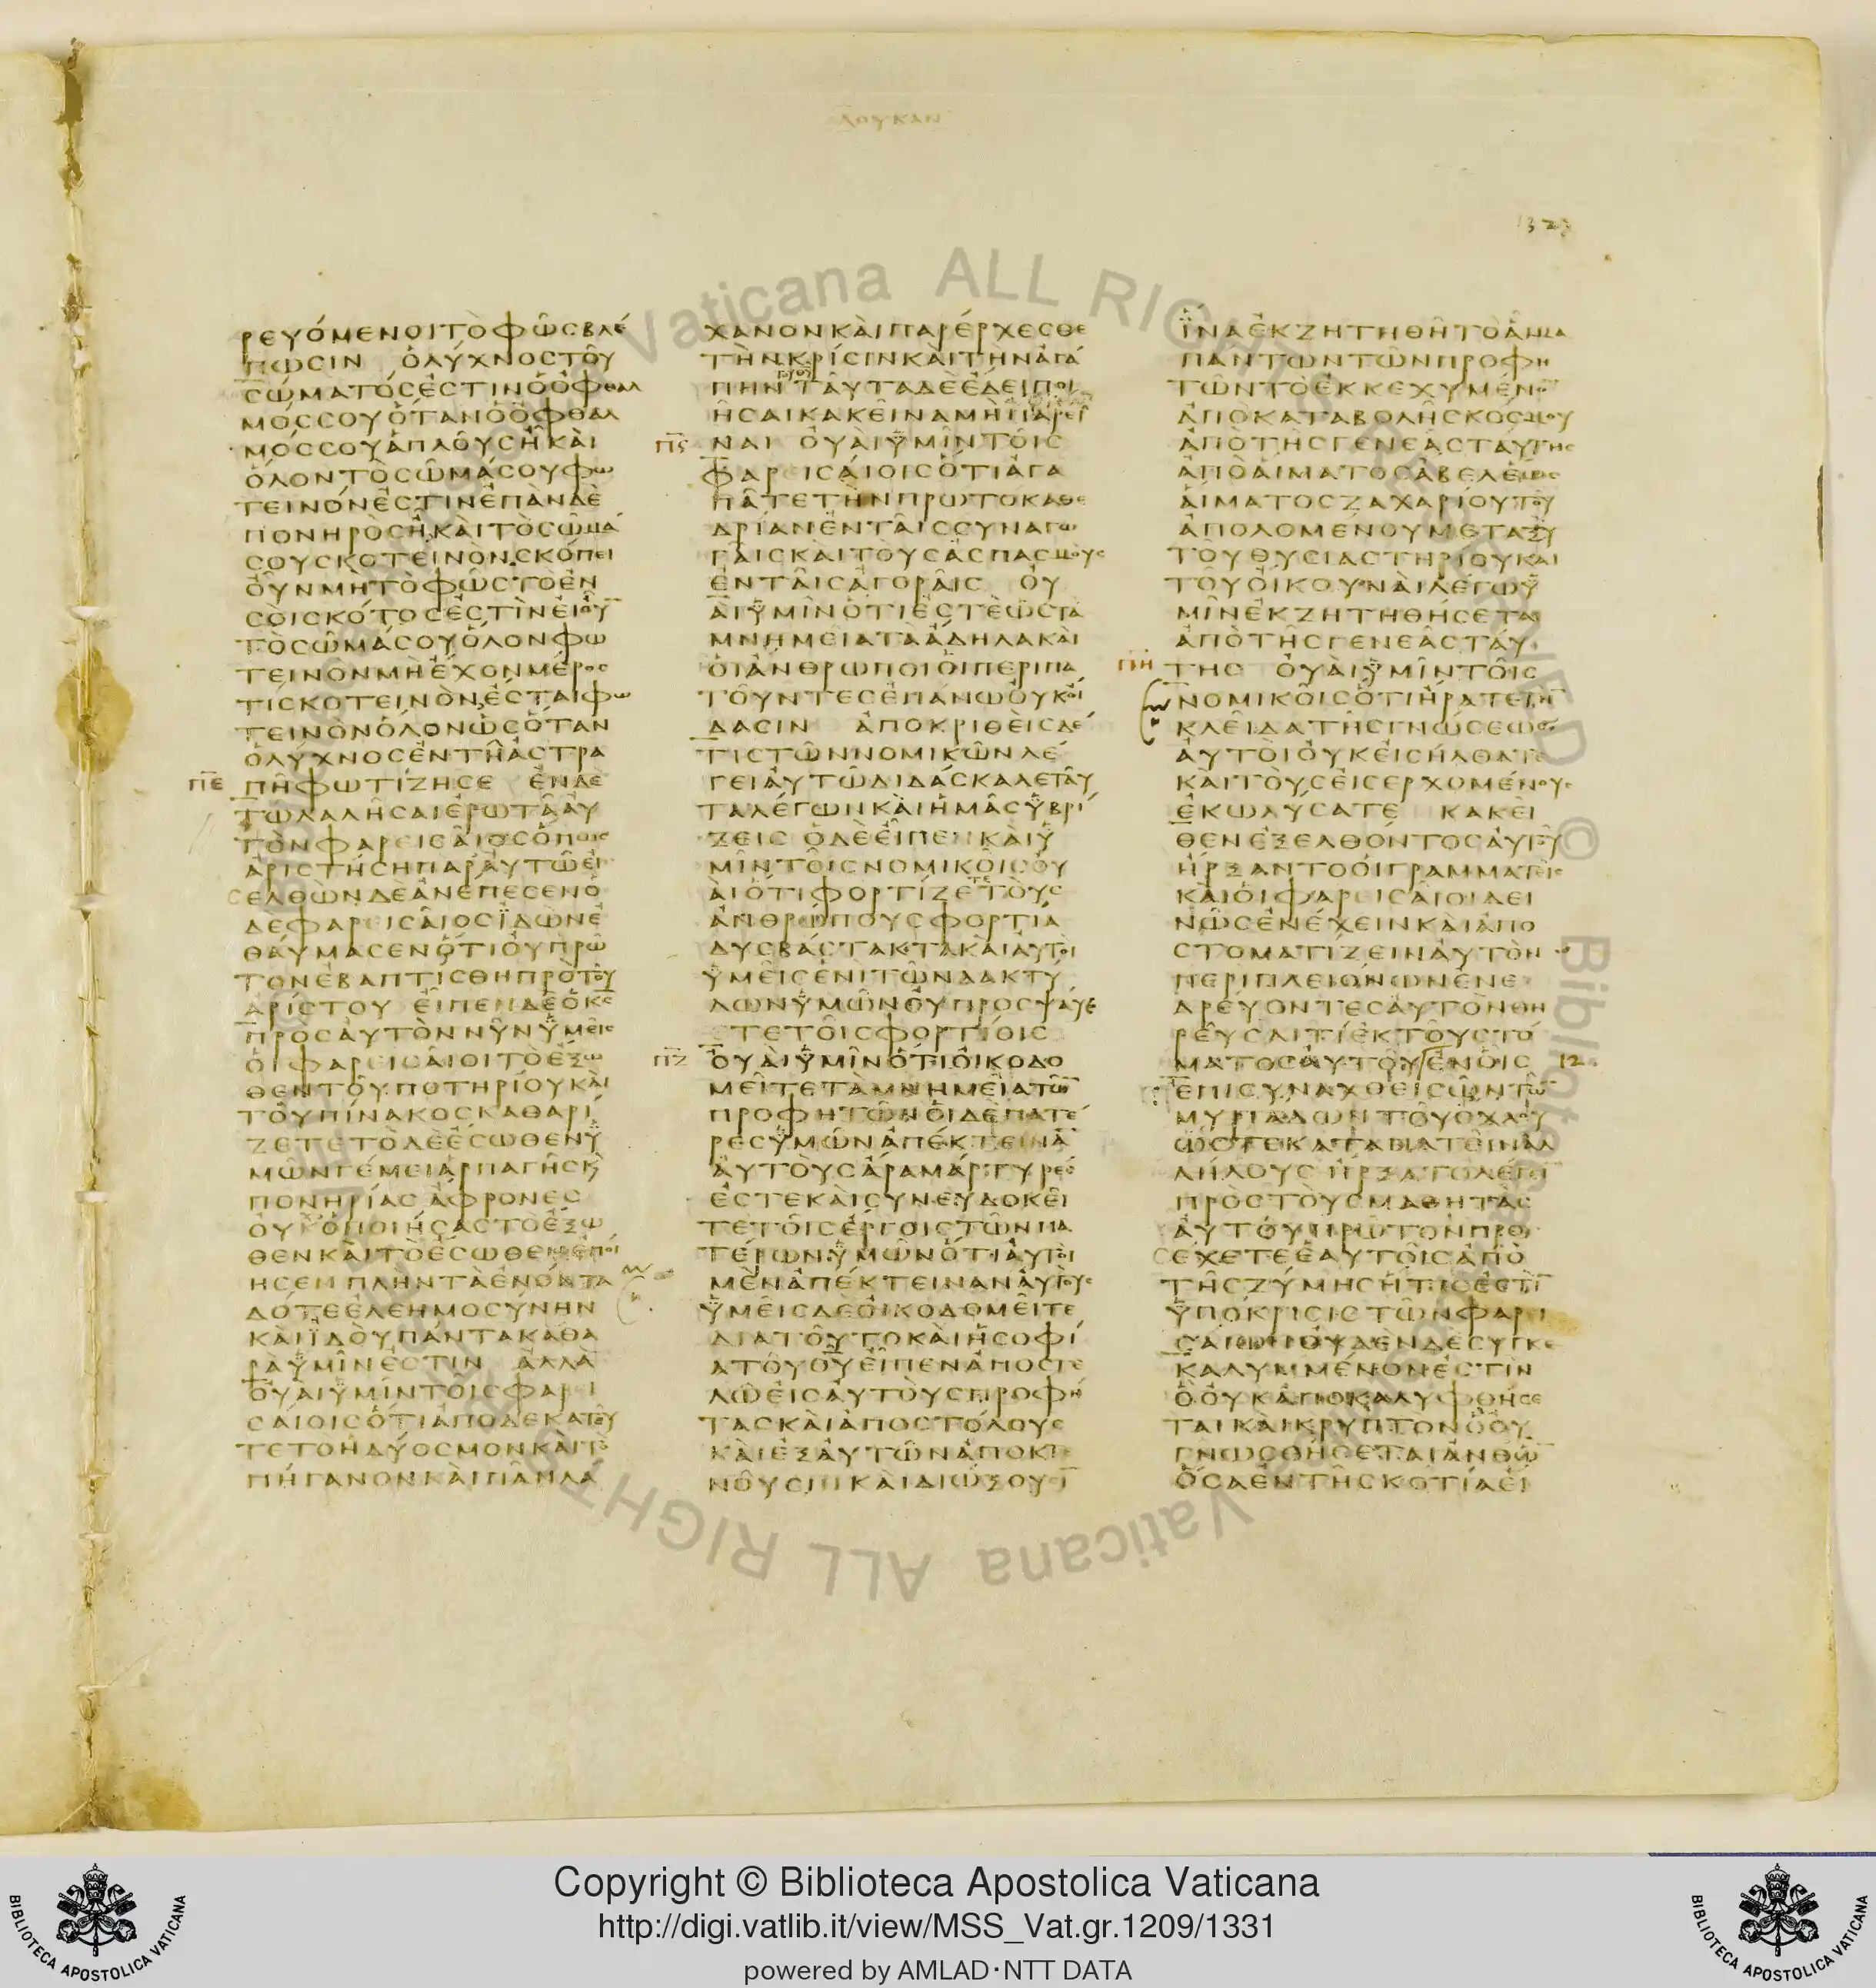 ΛΟΥΚΑΝ
1327
ΡΕΥΌΜΕΝΟΙΤῸΦΩ͂ϹΒΛΈ
ΠΩϹΙΝ ὉΛΎΧΝΟϹΤΟΥ͂
ϹΏΜΑΤΌϹἘϹΤΙΝὉὈΦΘΑΛ
ΜΌϹϹΟΥὍΤΑΝὉὈΦΘΑΛ
ΜΌϹϹΟΥἉΠΛΟΥ͂ϹΗ͂ΚΑῚ
ὍΛΟΝΤῸϹΩ͂ΜΆϹΟΥΦΩ
ΤΕΙΝΌΝἘϹΤΙΝἘΠᾺΝΔῈ
ΠΟΝΗΡῸϹΗ͂ΚΑῚΤῸϹΩ͂ΜΆ
ϹΟΥϹΚΟΤΕΙΝΌΝϹΚΌΠΕΙ
ΟΥ͂ΝΜῊΤῸΦΩ͂ϹΤῸἘΝ
ϹΟῚϹΚΌΤΟϹἘϹΤῚΝΕἸΟΥ͂
ΤῸϹΩ͂ΜΆϹΟΥὍΛΟΝΦΩ
ΤΕΙΝῸΝΜῊἜΧΟΝΜΈΡΟϹ
ΤΊϹΚΟΤΕΙΝῸΝἜϹΤΑΙΦΩ
ΤΕΙΝῸΝὍΛΟΝὩϹὍΤΑΝ
ὉΛΎΧΝΟϹἘΝΤΗ͂ἈϹΤΡΑ
ΠΕ ΠΗ͂ΦΩΤΊΖΗϹΕ ἘΝΔῈ
ΤΩΛΑΛΗ͂ϹΑΙἘΡΩΤΑ͂ΑΥ
ΤῸΝΦΑΡΕΙϹΑΙ͂ΟϹὍΠΩϹ
ἈΡΙϹΤΉϹΗΠΑΡΑΥΤΩ͂ΕἸ
ϹΕΛΘῺΝΔῈἈΝΈΠΕϹΕΝὉ
ΔῈΦΑΡΕΙϹΑΙ͂ΟϹΪΔῺΝἘ
ΘΑΎΜΑϹΕΝὍΤΙΟΥΠΡΩ͂
ΤΟΝἘΒΑΠΤΊϹΘΗΠΡῸΤΟΥ͂
ἈΡΊϹΤΟΥ ΕΙ͂ΠΕΝΔῈὉΚϹ
ΠΡῸϹΑΥΤῸΝΝΥ͂ΝΫΜΕΙ͂Ϲ
ὉΙΦΑΡΕΙϹΑΙ͂ΟΙΤῸἜΞΩ
ΘΕΝΤΟΥ͂ΠΟΤΗΡΊΟΥΚΑῚ
ΤΟΥ͂ΠΊΝΑΚΟϹΚΑΘΑΡΊ
ΖΕΤΕΤῸΔῈἜϹΩΘΕΝΫ
ΜΩ͂ΝΓΈΜΕΙἉΡΠΑΓΗ͂ϹΚ
ΠΟΝΗΡΊΑϹἌΦΡΟΝΕϹ
ΟΥΧὉΠΟΙΉϹΑϹΤῸἜΞΩ
ΘΕΝΚΑῚΤῸἜϹΩΘΕΝἘΠΟΊ
ΗϹΕΝΠΛΗΝΤᾺἘΝΌΝΤΑ
ΔΌΤΕἘΛΕΗΜΟϹΎΝΗΝ
ΚΑῚΪΔΟῪΠΆΝΤΑΚΑΘΑ
ΡᾺΫΜΙ͂ΝἘϹΤΙΝ ἈΛΛᾺ
ΟΥΑῚΫΜΙ͂ΝΤΟΙ͂ϹΦΑΡΕΙ
ϹΑΊΟΙϹὍΤΙἈΠΟΔΕΚΑΤΟΥ͂
ΤΕΤΟΗΔΎΟϹΜΟΝΚΑῚΤῸ
ΠΉΓΑΝΟΝΚΑῚΠΑ͂ΝΛΆ
ΧΑΝΟΝΚΑῚΠΑΡΈΡΧΕϹΘΕ
ΤῊΝΚΡΊϹΙΝΚΑῚΤῊΝἈΓΆ
ΠΗΝΤΑΥ͂ΤΑΔῈἜΔΕΙΠΟΙ
Η͂ϹΑΙΚΑΚΕΙ͂ΝΑΜῊΠΑΡΕΙ͂
ΠϚ ΝΑΙ ΟΥΑῚΫΜΙ͂ΝΤΟΙ͂Ϲ
ΦΑΡΕΙϹΑΊΟΙϹὍΤΙἈΓΑ
ΠΑ͂ΤΕΤῊΝΠΡΩΤΟΚΑΘΕ
ΔΡΊΑΝἘΝΤΑΙ͂ϹϹΥΝΑΓΩ
ΓΑΙ͂ϹΚΑῚΤΟῪϹἈϹΠΑϹΜΟῪϹ
ἘΝΤΑΙ͂ϹἈΓΟΡΑΙ͂Ϲ ΟΥ
ΑῚΫΜΙ͂ΝὍΤΙἘϹΤῈὩϹΤᾺ
ΜΝΗΜΕΙΑΤΑἈΔΗΛΑΚΑῚ
ΟἹἌΝΘΡΩΠΟΙΟἹΠΕΡΙΠΑ
ΤΟΥ͂ΝΤΕϹἘΠΆΝΩΟΥΚΟΊ
ΔΑϹΙΝ ἈΠΟΚΡΙΘΕῚϹΔΈ
ΤΙϹΤΩ͂ΝΝΟΜΙΚΩ͂ΝΛΈ
ΓΕΙΑΥΤΩ͂ΔΙΔΆϹΚΑΛΕΤΑΥ͂
ΤΑΛΈΓΩΝΚΑῚΗΜΑ͂ϹΫΒΡΊ
ΖΕΙϹ ὉΔῈΕΙ͂ΠΕΝΚΑῚΫ
ΜΙ͂ΝΤΟΙ͂ϹΝΟΜΙΚΟΙ͂ϹΟΥ
ΑῚὍΤΙΦΟΡΤΊΖΕΤΕΤΟῪϹ
ἈΝΘΡΏΠΟΥϹΦΟΡΤΊΑ
ΔΥϹΒΆϹΤΑΚΤΑΚΑῚΑΥΤΟῚ
ΫΜΕΙ͂ϹἘΝῚΤΩ͂ΝΔΑΚΤΎ
ΛΩΝΫΜΩ͂ΝΟΥΠΡΟϹΨΑΎΕ
ΤΕΤΟΙ͂ϹΦΟΡΤΊΟΙϹ
ΠΖ ΟΥΑῚΫΜΙ͂ΝὍΤΙΟΙΚΟΔΟ
ΜΕΙ͂ΤΕΤᾺΜΝΗΜΕΙ͂ΑΤΩ͂
ΠΡΟΦΗΤΩ͂ΝΟἹΔῈΠΑΤΈ
ΡΕϹΫΜΩ͂ΝἈΠΈΚΤΕΙΝΑ
ΑΥΤΟῪϹἌΡΑΜΆΡΤΥΡΕϹ
ἘϹΤΕΚΑῚϹΥΝΕΥΔΟΚΕΙ͂
ΤΕΤΟΙ͂ϹἜΡΓΟΙϹΤΩ͂ΝΠΑ
ΤΈΡΩΝΫΜΩ͂ΝὍΤΙΑΥΤΟῚ
ΜῈΝἈΠΈΚΤΕΙΝΑΝΑΥΤΟῪϹ
ΫΜΕΙ͂ϹΔῈΟΙΚΟΔΟΜΕΙ͂ΤΕ
ΔΙΑΤΟΥ͂ΤΟΚΑῚΗϹΟΦΊ
ΑΤΟΥ͂ΘΥΕΙ͂ΠΕΝἈΠΟϹΤΕ
ΛΩ͂ΕἸϹΑΥΤΟῪϹΠΡΟΦΉ
ΤΑϹΚΑῚἈΠΟϹΤΌΛΟΥϹ
ΚΑῚἘΞΑΥΤΩ͂ΝἈΠΟΚΤΕ
ΝΟΥ͂ϹΙΝΚΑῚΔΙΏΞΟΥϹΙ
ἽΝΑἘΚΖΗΤΗΘΗ͂ΤῸΑΙΜΑ
ΠΆΝΤΩΝΤΩ͂ΝΠΡΟΦΗ
ΤΩ͂ΝΤῸἘΚΚΕΧΥΜΈΝΟ
ἈΠΟΚΑΤΑΒΟΛΗ͂ϹΚΟϹΜΟΥ
ἈΠῸΤΗ͂ϹΓΕΝΕΑ͂ϹΤΑΥΤΗϹ
ἈΠῸΑἽΜΑΤΟϹἈΒΕΛἝΩϹ
ΑἽΜΑΤΟϹΖΑΧΑΡΊΟΥΤΟΥ͂
ἈΠΟΛΟΜΈΝΟΥΜΕΤΑΞῪ
ΤΟΥ͂ΘΥϹΙΑϹΤΗΡΊΟΥΚΑΙ
ΤΟΥ͂ΟἼΚΟΥΝΑῚΛΈΓΩΫ
ΜΙ͂ΝἘΚΖΗΤΗΘΉϹΕΤΑΙ
ἈΠῸΤΗ͂ϹΓΕΝΕΑ͂ϹΤΑΎ
ΠΗ ΤΗϹ ΟΥΑῚΫΜΙ͂ΝΤΟΙ͂Ϲ
ΝΟΜΙΚΟΙ͂ϹὍΤΙΗΡΑΤΕΤῊ
ΚΛΕΙ͂ΔΑΤΗ͂ϹΓΝΏϹΕΩϹ
ΑΥΤΟῚΟΥΚΕἸϹΉΛΘΑΤΕ
ΚΑῚΤΟῪϹΕἸϹΕΡΧΟΜΈΝΟΥϹ
ἘΚΩΛΎϹΑΤΕ ΚΑΚΕΙ
ΘΕΝἘΞΕΛΘΌΝΤΟϹΑΥΤΟΥ͂
ἬΡΞΑΝΤΟΟἹΓΡΑΜΜΑΤΕΙ͂Ϲ
ΚΑῚΟἹΦΑΡΕΙϹΑΙ͂ΟΙΔΕΙ
ΝΩ͂ϹἘΝΈΧΕΙΝΚΑῚἈΠΟ
ϹΤΟΜΑΤΊΖΕΙΝΑΥΤῸΝ
ΠΕΡΙΠΛΕΙΌΝΩΝἘΝΕ
ΔΡΕΎΟΝΤΕϹΑΥΤῸΝΘΗ
ΡΕΥ͂ϹΑΙΤΊἘΚΤΟΥ͂ϹΤΌ
ΜΑΤΟϹΑΥΤΟΥ͂ἘΝΟΙ͂Ϲ 12
ἘΠΙϹΥΝΑΧΘΕΙϹΩ͂ΝΤΩ͂
ΜΥΡΙΆΔΩΝΤΟΥ͂ὌΧΛΟΥ
ὭϹΤΕΚΑΤΑΠΑΤΕΙ͂ΝἈΛ
ΛΉΛΟΥϹἬΡΞΑΤΟΛΈΓΕΙ
ΠΡῸϹΤΟῪϹΜΑΘΗΤᾺϹ
ΑΥΤΟΥ͂ΠΡΩ͂ΤΟΝΠΡΟϹ
ΕΧΕΤΕἙΑΥΤΟΙ͂ϹἈΠῸ
ΤΗ͂ϹΖΎΜΗϹἭΤΙϹἘϹΤῚ
ΫΠΌΚΡΙϹΙϹΤΩ͂ΝΦΑΡΕΙ
ϹΑΊΩΝΟΥΔῈΝΔῈϹΥΓΚΕ
ΚΑΛΥΜΜΈΝΟΝἘϹΤῚΝ
ὋΟΥΚἈΠΟΚΑΛΥΦΘΉϹΕ
ΤΑΙΚΑῚΚΡΥΠΤΟΝὋΟΥ
ΓΝΩϹΘΉϹΕΤΑΙἈΝΘΩ͂
ὍϹΑἘΝΤΗ͂ϹΚΟΤΊΑΕἼ
Copyright © Biblioteca Apostolica Vaticana
http://digi.vatlib.it/view/MSS_Vat.gr.1209/1331
powered by AMLAD·NTT DATA
BIBLIOTECA APOSTOLICA VATICANA
BIBLIOTECA APOSTOLICA VATICANA